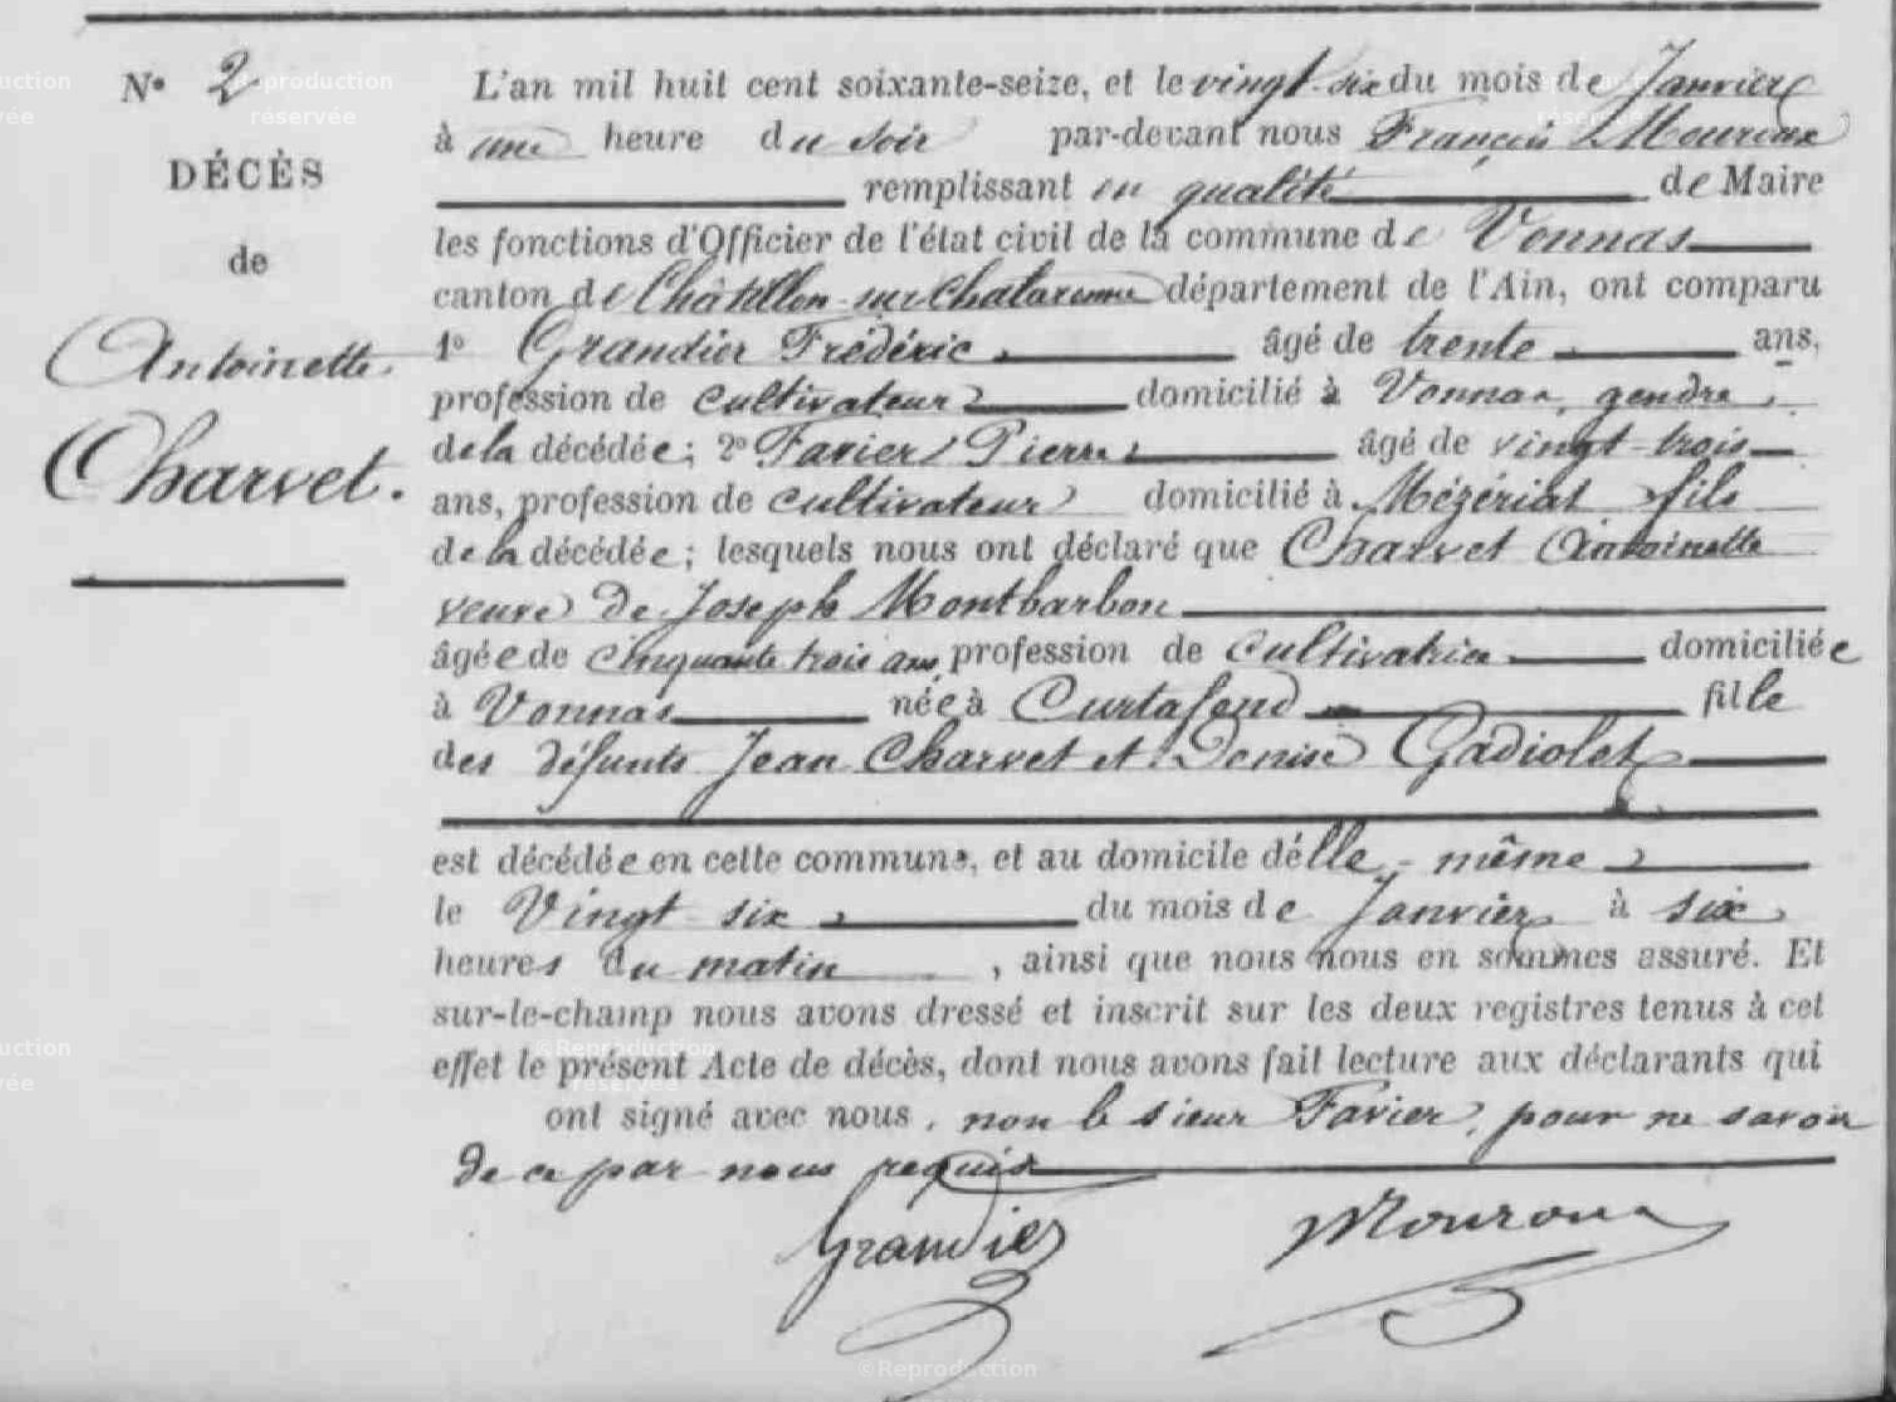 N° 2
DÉCÈS
de
Antoinette
Charvet.
L'an mil huit cent soixante-seize, et le vingt-six du mois de Janvier
à une heure du soir par-devant nous François Mouroux
remplissant en qualité de Maire
les fonctions d'Officier de l'état civil de la commune de Vonnas
canton de Châtillon-sur-Chalaronne département de l'Ain, ont comparu
1° Grandier Frédéric âgé de trente ans,
profession de cultivateur domicilié à Vonnas, gendre
de la décédée; 2° Favier Pierre âgé de vingt-trois
ans, profession de cultivateur domicilié à Mézériat fils
de la décédée; lesquels nous ont déclaré que Charvet Antoinette
veuve de Joseph Montbarbon
âgée de cinquante trois ans, profession de cultivatrice domiciliée
à Vonnas née à Curtafond fille
des défunts Jean Charvet et Denise Gadiolet
est décédée en cette commune, et au domicile d'elle-même
le Vingt six du mois de Janvier à six
heures du matin, ainsi que nous nous en sommes assuré. Et
sur-le-champ nous avons dressé et inscrit sur les deux registres tenus à cet
effet le présent Acte de décès, dont nous avons fait lecture aux déclarants qui
ont signé avec nous, non le sieur Favier, pour ne savoir
de ce par nous requis
Grandier Mouroux
©Reproduction
réservée